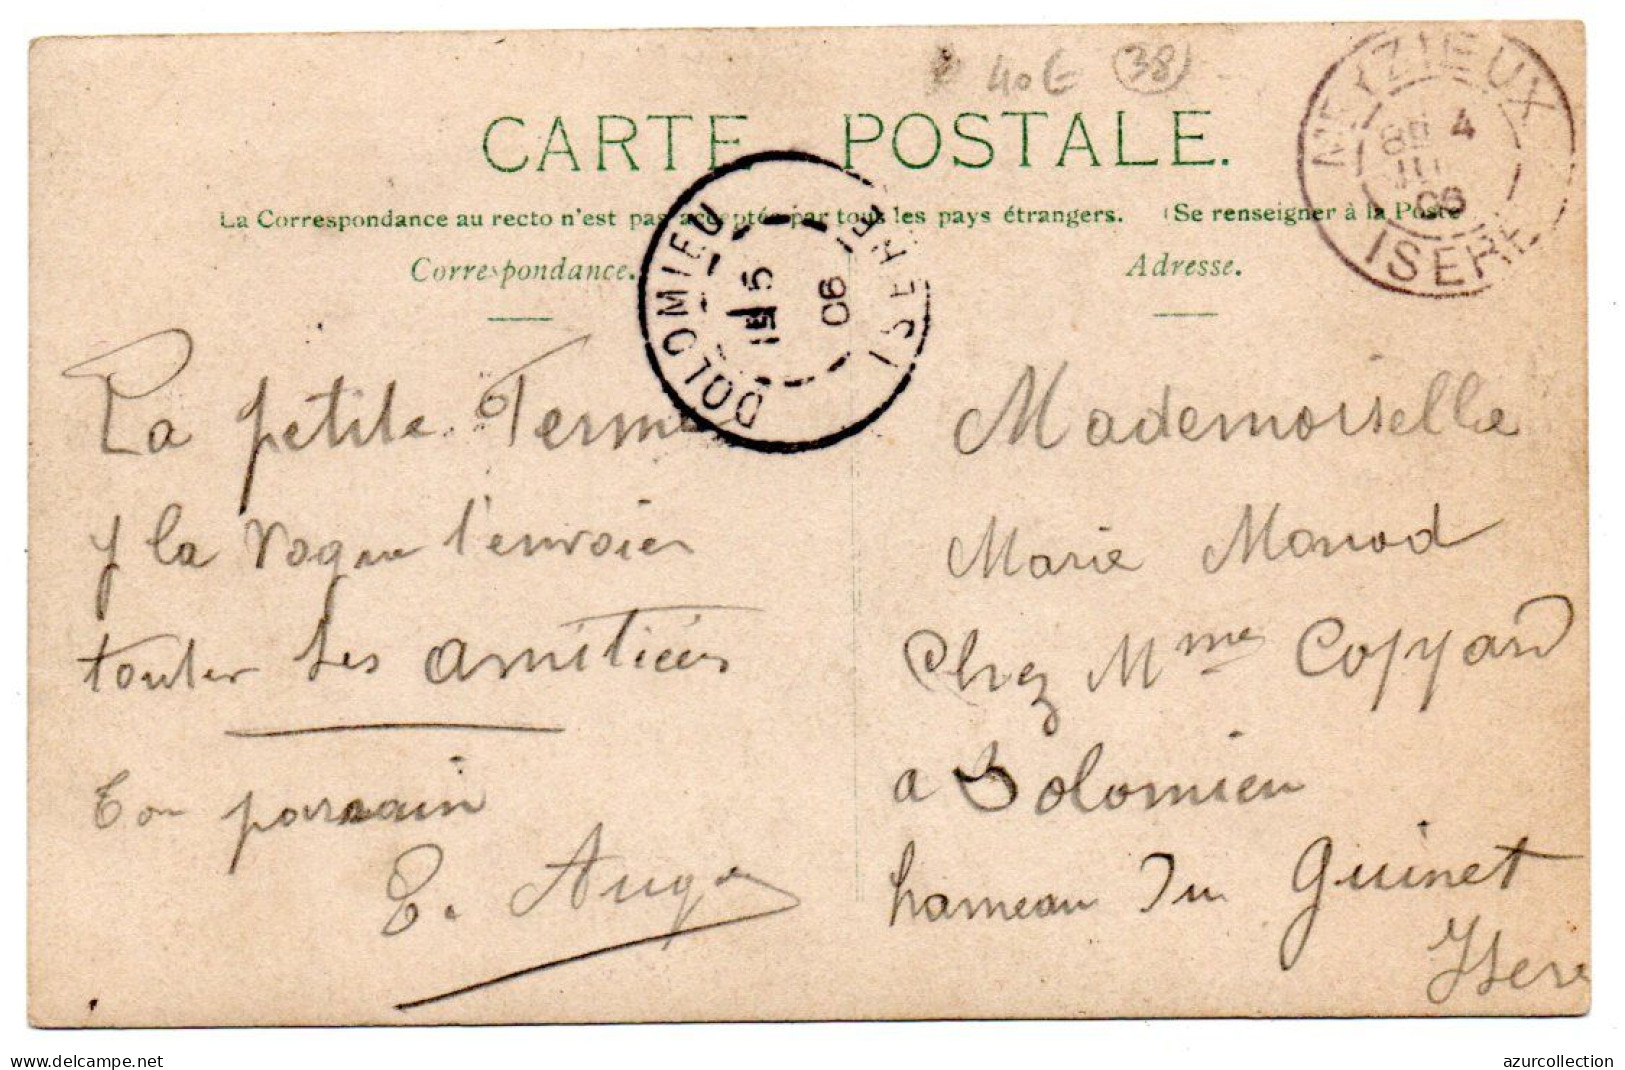 40€ (38)
CARTE POSTALE.
La Correspondance au recto n'est pas acceptée par tous les pays étrangers. (Se renseigner à la Poste
Correspondance.
Adresse.
MEYZIEUX
4
06
ISERE
DOLOMIEU
5
06
ISERE
La petite Ferme
la Vogue l'envoies
toutes ses amitiées
Ton parrain
E.
Mademoiselle
Marie Monod
Chez Mme Coppard
a Dolomieu
hameau Du Guinet
Isere
delcampe.net
azurcollection